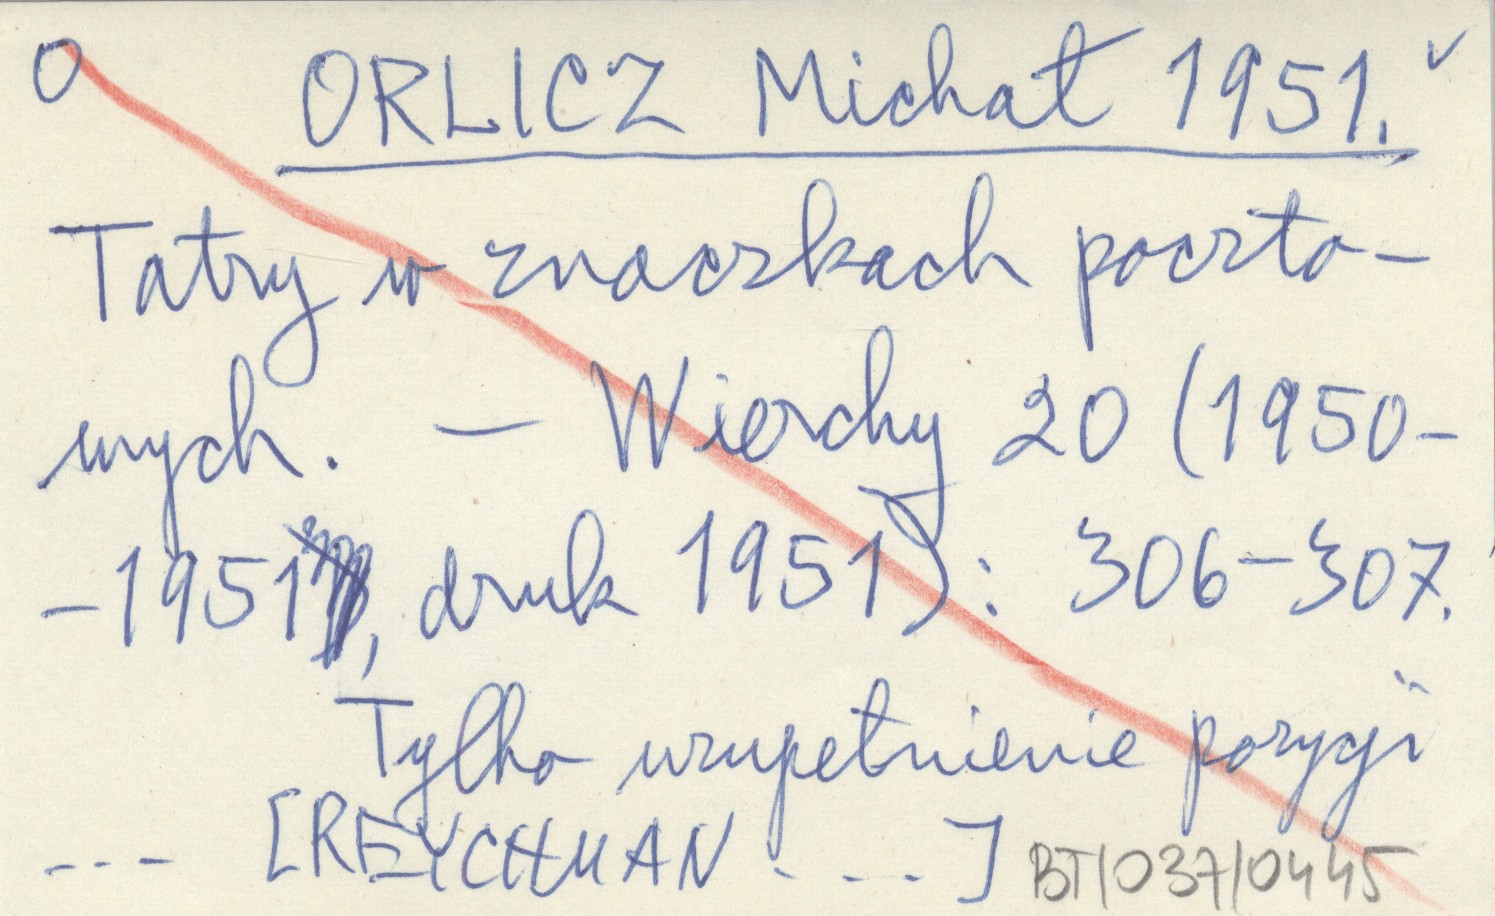 O ORLICZ Michał 1951. v
Tatry w znaczkach poczto-
wych. — Wierchy 20 (1950-
-1951, druk 1951): 306-307.
Tylko uzupełnienie pozycji
--- [REYCHMAN ....]
BT/037/0445